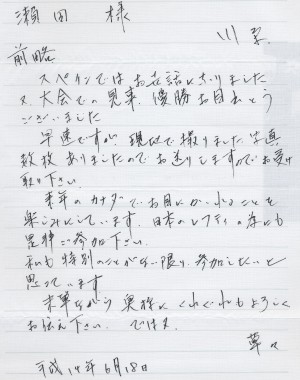 瀬田 様
前略
スペインではお世話になりました
又、大会での見事、優勝お目出とう
ございました
早速ですが、現地で撮りました写真
数枚ありましたのでお送りしますのでお受け
取り下さい。
来年のカナダでお目にかかれることを
楽しみにしています。日本のレフティの為にも
是非ご参加下さい。
私も特別のことがない限り、参加したいと
思っています
末筆ながら奥様にくれぐれもよろしく
お伝え下さい。ではまた
草々
平成14年6月18日